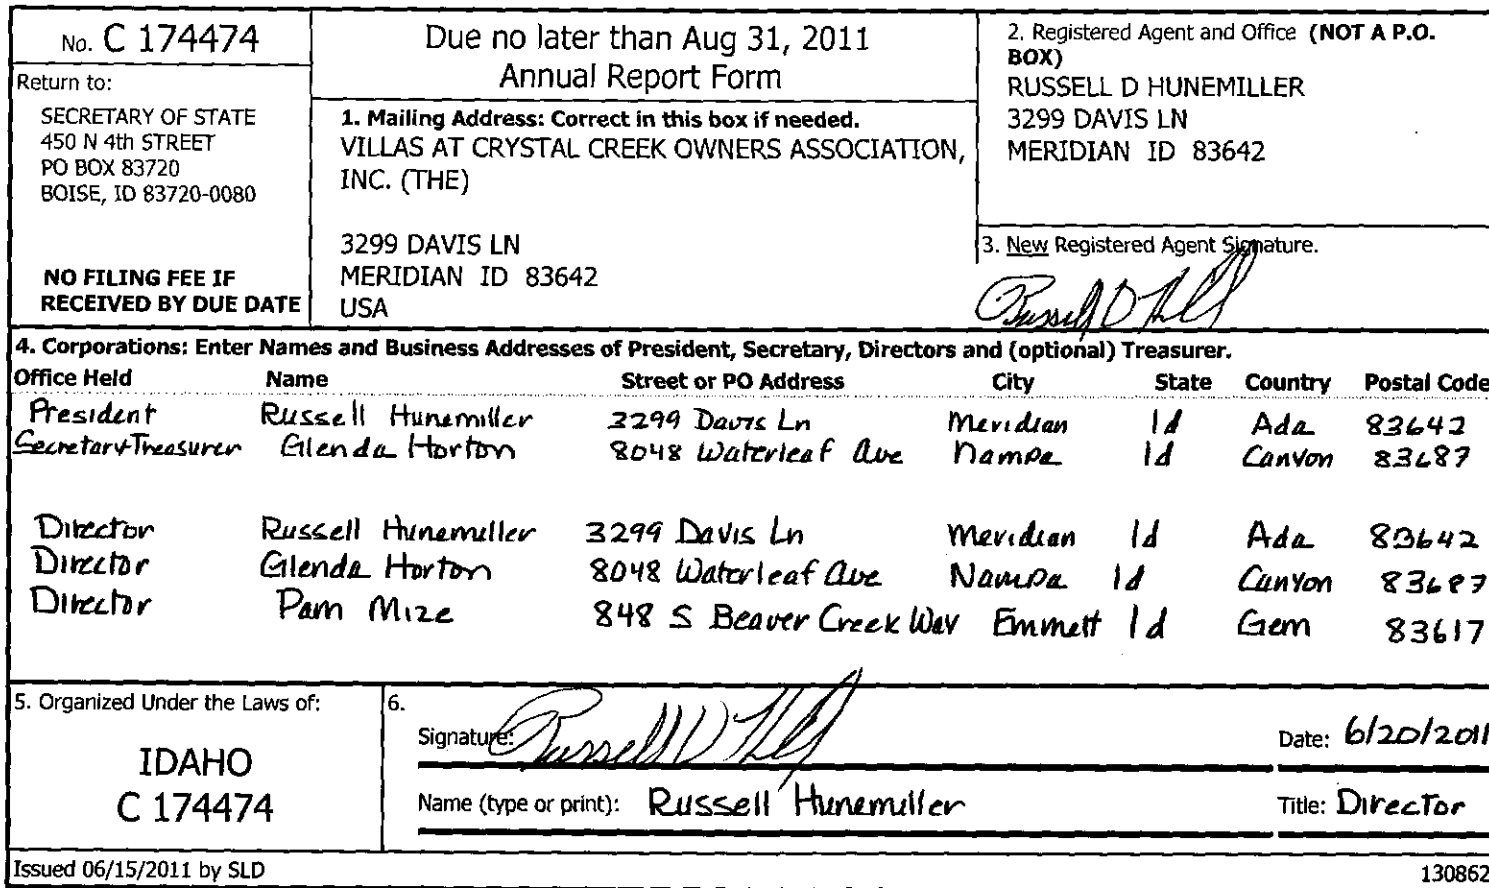 No. C 174474
Return to:
SECRETARY OF STATE
450 N 4th STREET
PO BOX 83720
BOISE, ID 83720-0080
NO FILING FEE IF
RECEIVED BY DUE DATE
Due no later than Aug 31, 2011
Annual Report Form
1. Mailing Address: Correct in this box if needed.
VILLAS AT CRYSTAL CREEK OWNERS ASSOCIATION,
INC. (THE)
3299 DAVIS LN
MERIDIAN ID 83642
USA
2. Registered Agent and Office (NOT A P.O.
BOX)
RUSSELL D HUNEMILLER
3299 DAVIS LN
MERIDIAN ID 83642
3. New Registered Agent Signature.
4. Corporations: Enter Names and Business Addresses of President, Secretary, Directors and (optional) Treasurer.
Office Held Name Street or PO Address City State Country Postal Code
President Russell Hunemiller 3299 Davis Ln Meridian Id Ada 83642
Secretary+Treasurer Glenda Horton 8048 Waterleaf Ave Nampa Id Canyon 83687
Director Russell Hunemiller 3299 Davis Ln Meridian Id Ada 83642
Director Glenda Horton 8048 Waterleaf Ave Nampa Id Canyon 83687
Director Pam Mize 848 S Beaver Creek Way Emmett Id Gem 83617
5. Organized Under the Laws of:
IDAHO
C 174474
6.
Signature: Date: 6/20/2011
Name (type or print): Russell Hunemiller Title: Director
Issued 06/15/2011 by SLD 130862